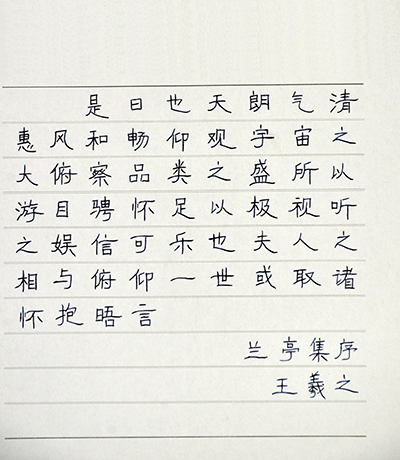 是日也天朗气清
惠风和畅仰观宇宙之
大俯察品类之盛所以
游目聘怀足以极视听
之娱信可乐也夫人之
相与俯仰一世或取诸
怀抱晤言
兰亭集序
王羲之